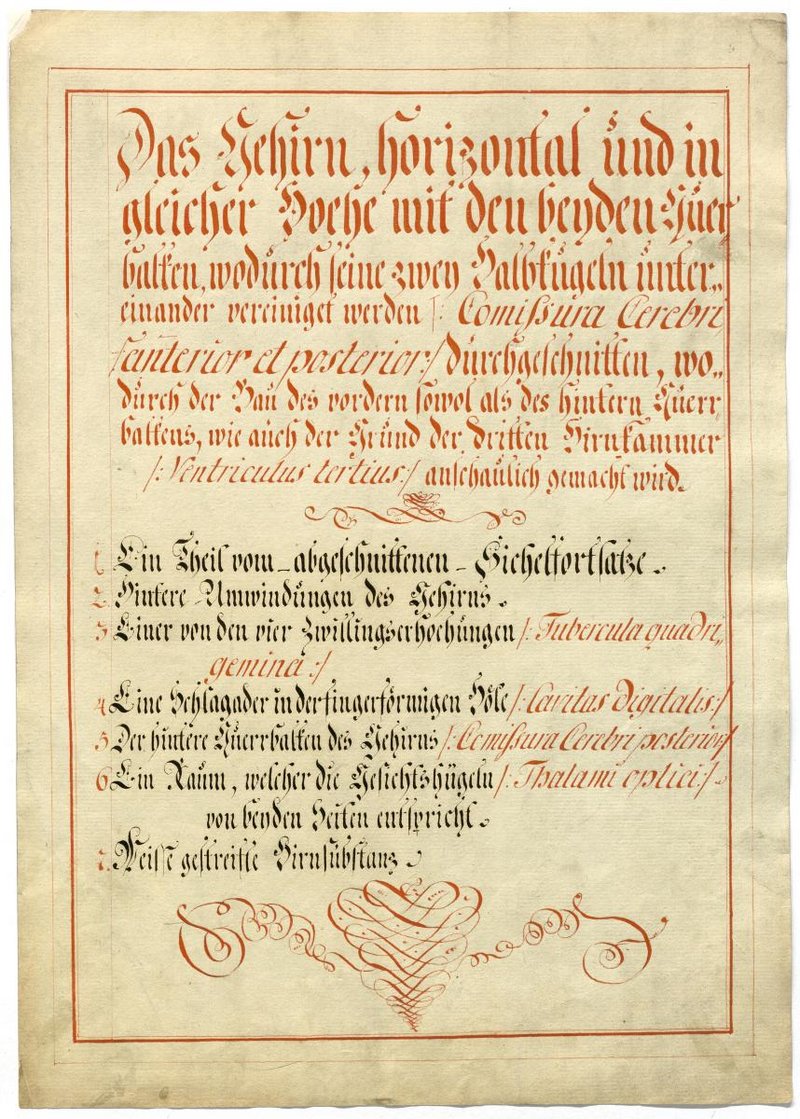 Das Gehirn, horizontal und in
gleicher Hoehe mit den beyden Quer
balken, wodurch seine zwey Halbkugeln unter„
einander vereiniget werden /: Comißura Cerebri
anterior et posterior :/ durchgeschnitten, wo„
durch der Bau des vordern sowol als des hintern Querr
balkens, wie auch der Grund der dritten Hirnkammer
/: Ventriculus tertius :/ anschaulich gemacht wird.
1. Ein Theil vom abgeschnittenen Sichelfortsatze.
2. Hintere Umwindungen des Gehirns.
3 Einer von den vier Zwillingserhoehungen /: Tubercula quadri„
gemina :/
4 Eine Schlagader in der fingerförmigen Höle /: Cavitas digitalis :/
5 Der hintere Querrbalken des Gehirns /: Comißura Cerebri posterior :/
6 Ein Raum, welcher die Gesichtshügeln /: Thalami optici :/
von beyden Seiten entspricht.
7. Weisse gestreifte Hirnsubstanz.